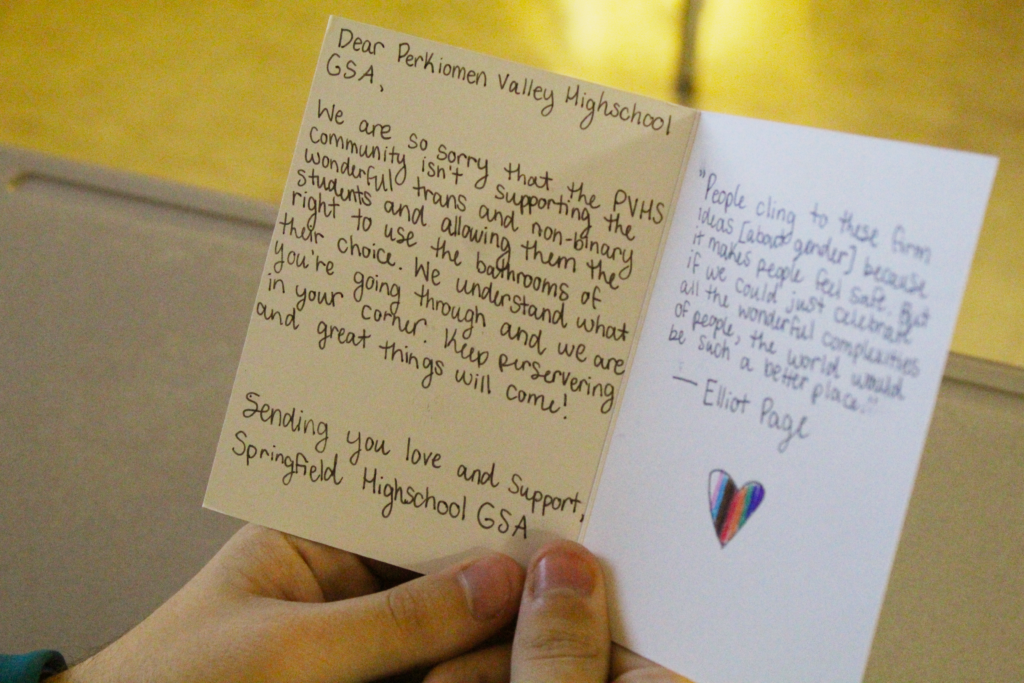 Dear Perkiomen Valley Highschool
GSA,
We are so sorry that the PVHS
community isn't supporting the
wonderful trans and non-binary
students and allowing them the
right to use the bathrooms of
their choice. We understand what
you're going through and we are
in your corner. Keep perservering
and great things will come!
Sending you love and support,
Springfield Highschool GSA
"People cling to these firm
ideas [about gender] because
it makes people feel safe. But
if we could just celebrate
all the wonderful complexities
of people, the world would
be such a better place."
— Elliot Page